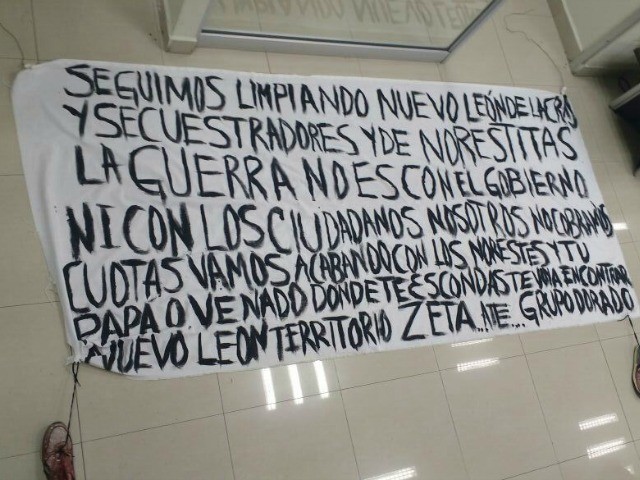 SEGUIMOS LIMPIANDO NUEVO LEÓN DE LACRAS
Y SECUESTRADORES Y DE NORESTITAS
LA GUERRA NO ES CON EL GOBIERNO
NI CON LOS CIUDADANOS NOSOTROS NO COBRAMOS
CUOTAS VAMOS ACABANDO CON LOS NORESTES Y TU
PAPA O VENADO DONDE TE ESCONDAS TE VOY A ENCONTRAR
NUEVO LEON TERRITORIO ZETA...ATE... GRUPO DORADO